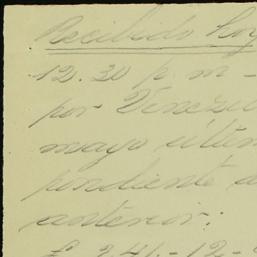 Recibido hoy
12.30 p.m -
por Venezu
mayo últim
pondiente a
anterior:
£ 241.-12-